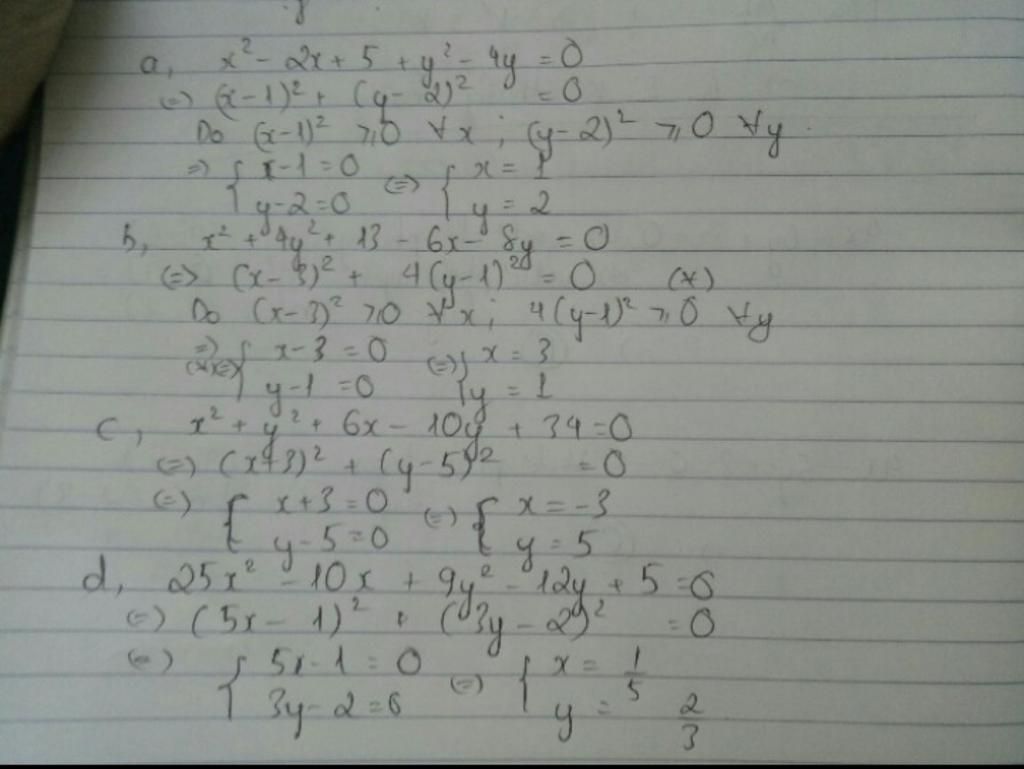 a, x² - 2x + 5 + y² - 4y = 0
(=) (x-1)² + (y-2)² = 0
Do (x-1)² ≥ 0 ∀x ; (y-2)² ≥ 0 ∀y.
=) { x-1=0 (=) { x = 1
y-2=0 y = 2
b, x² + 4y² + 13 - 6x - 8y = 0
(=) (x-3)² + 4(y-1)² = 0 (*)
Do (x-3)² ≥ 0 ∀x ; 4(y-1)² ≥ 0 ∀y
=) { x-3 = 0 (=) { x = 3
y-1 = 0 y = 1
c, x² + y² + 6x - 10y + 34 = 0
(=) (x+3)² + (y-5)² = 0
(=) { x+3=0 (=) { x = -3
y-5=0 y = 5
d, 25x² - 10x + 9y² - 12y + 5 = 0
(=) (5x-1)² + (3y-2)² = 0
(=) { 5x-1 = 0 (=) { x = 1/5
3y-2=0 y = 2/3